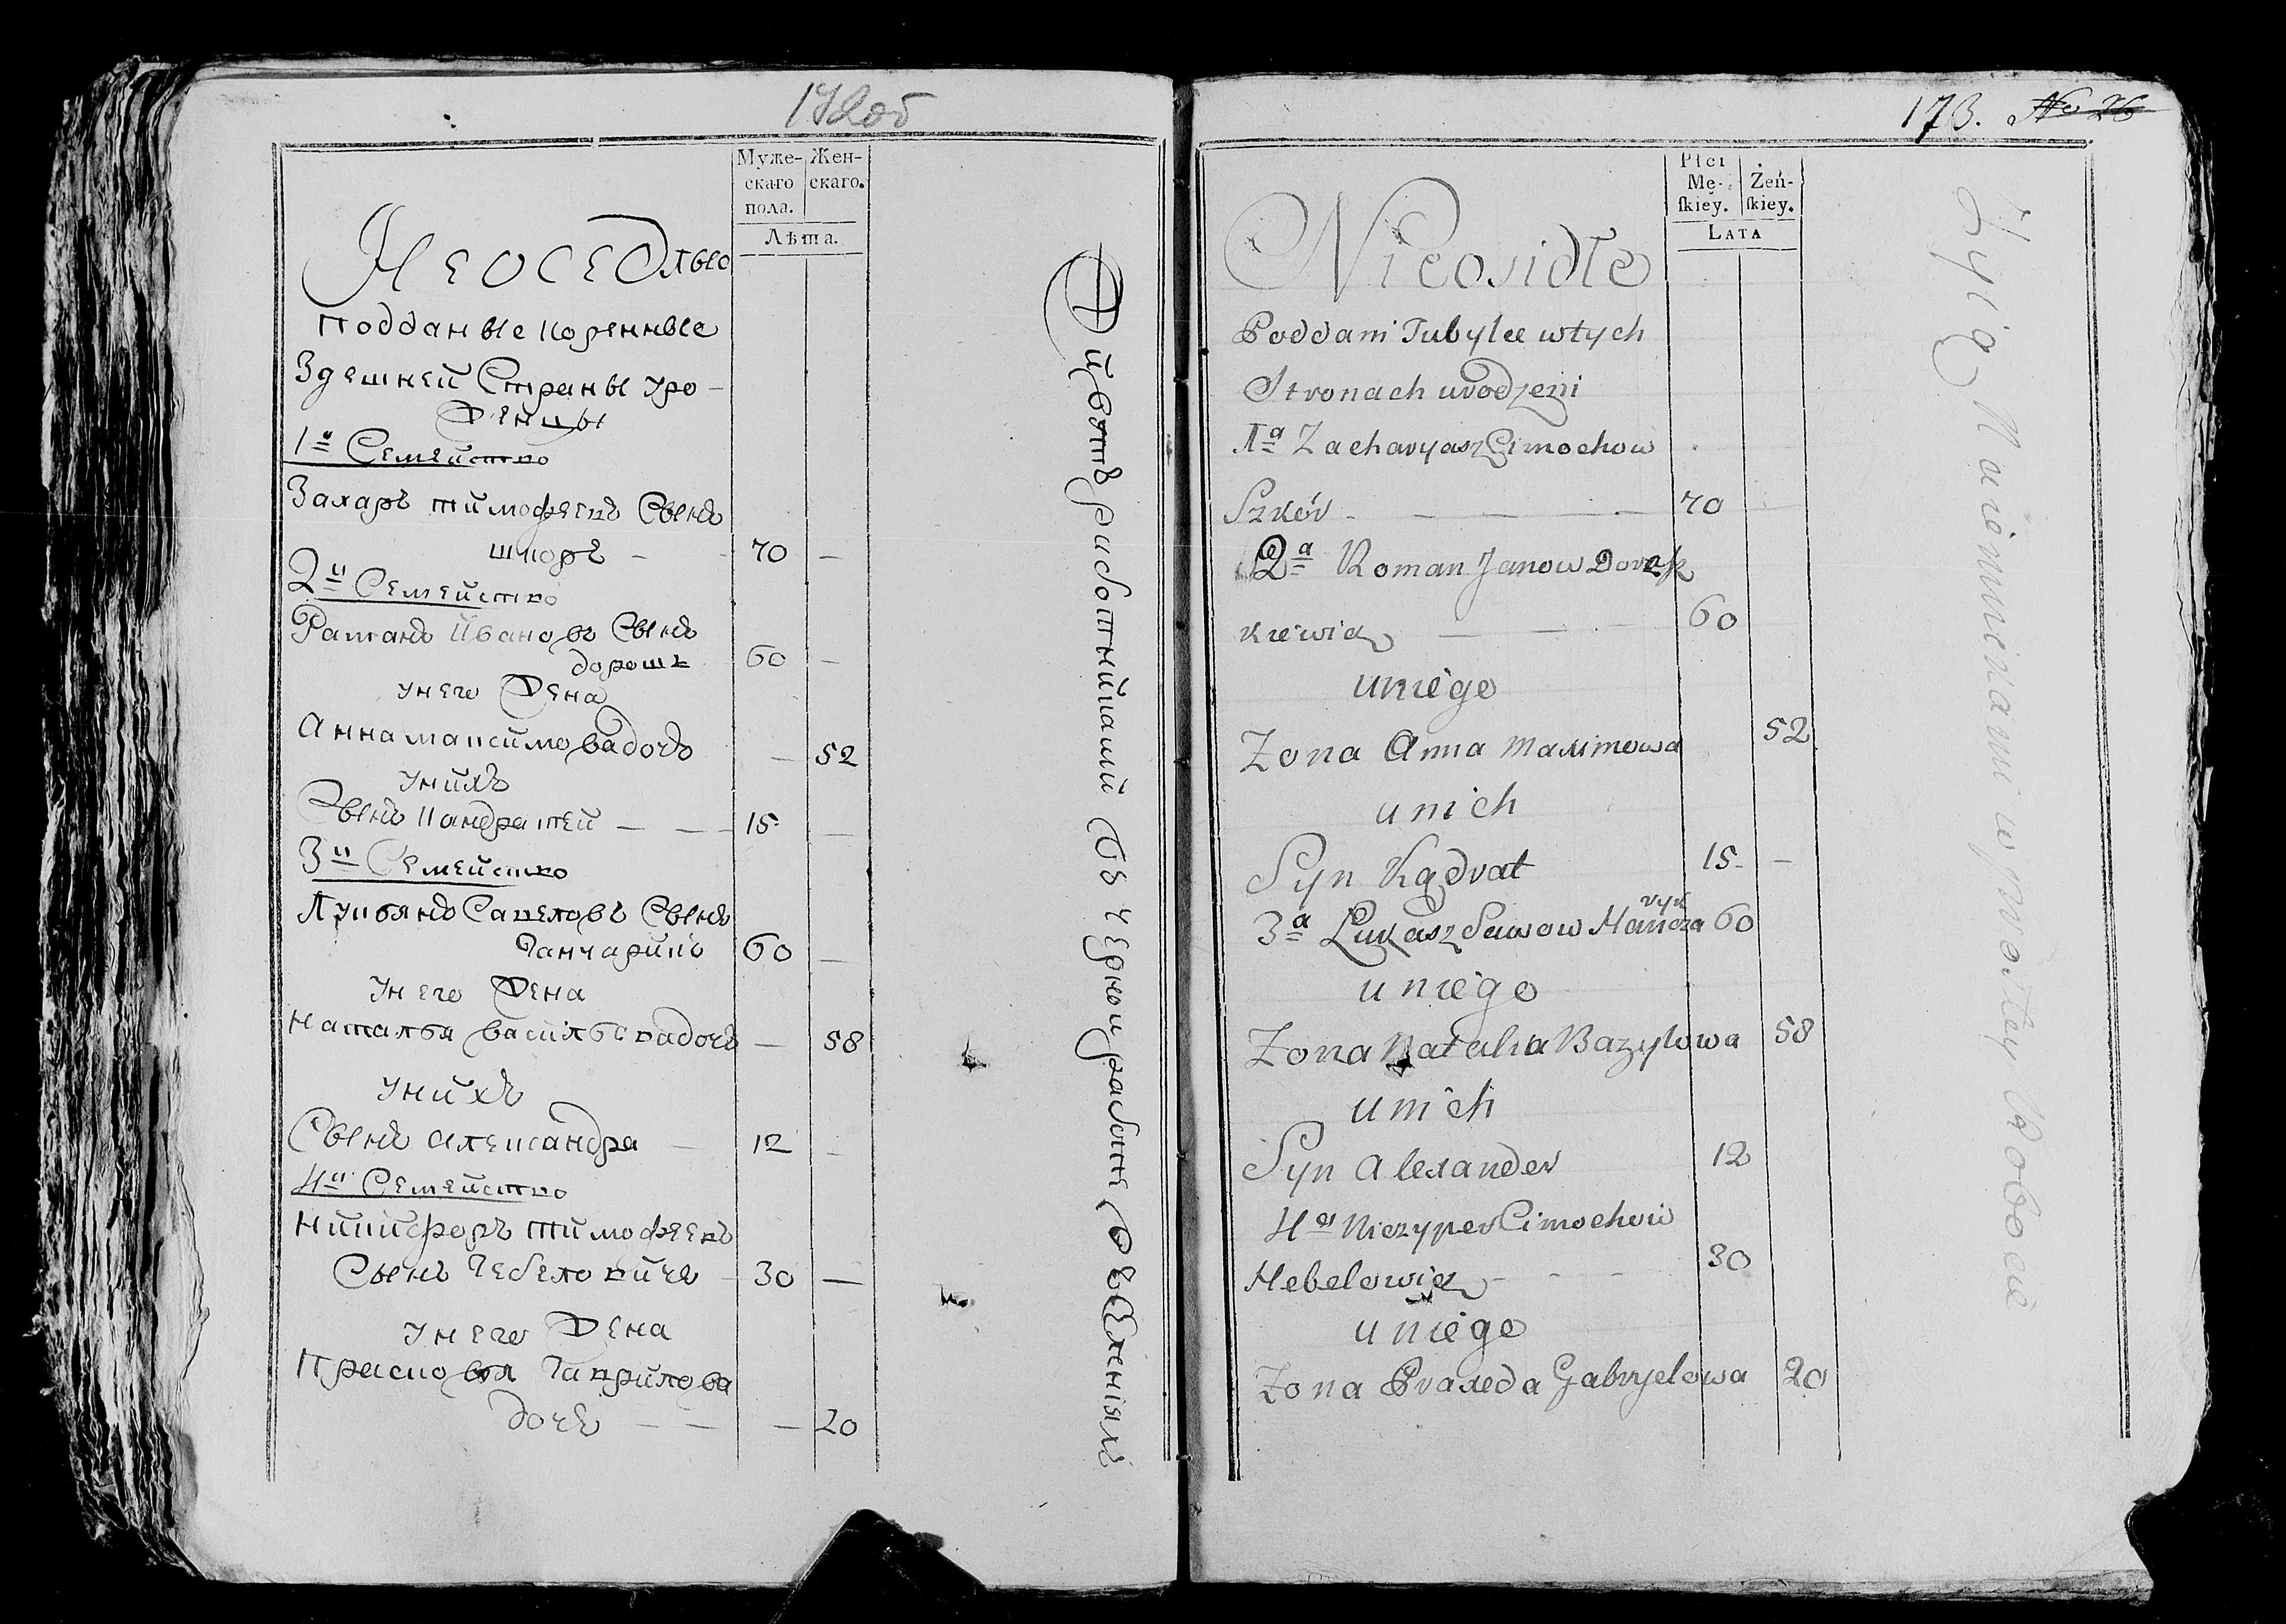 172об
Муже-
скаго
пола.
Жен-
скаго.
Лѣта.
Неоседлые
подданые коренные
Здешней Страны уро-
женцы
1е Семейство
Захаръ тимофеевъ Сынъ
шкоръ - - 70 —
2е Семейство
Раманъ Ивановъ Сынъ
дорошъ 60 —
унего Жена
Анна максимова дочъ — 52
Унихъ
Сынъ Кандратей — — 15 —
3е Семейство
Лукьянъ Савеловъ Сынъ
Ганчарикъ 60 —
Унего Жена
Наталья василъева дочъ — 58
Унихъ
Сынъ Александра — 12 —
4е Семейство
Никифоръ тимофеевъ
Сынъ Гебеловичъ - 30 —
Унего Жена
Прасковья Гаврилова
дочъ — — — 20
Животъ работниками Въ черной работе, Въ Селенiяхъ
173. No 26
Płci
Mę-
ſkiey.
Żeń-
ſkiey.
LATA
Nieosidłe
Poddani Tubylce w tych
Stronach urodzeni
1a Zacharyasz Cimochow
Szkór - — — — 70
2a Roman Janow Dorosz
kiewicz — — - 60
uniego
Zona Anna Maximowa 52
unich
Syn Kądrat 15 —
ryk
3a Łukasz Sawow Hancza 60
uniego
Zona Natalia Bazylowa 58
unich
Syn Alexander 12
4a Niczyper Cimochow
Hebelowicz - - - 30
uniego
Zona Praxeda Gabryelowa 20
Żyią Naiemnikami w prostey Robocie